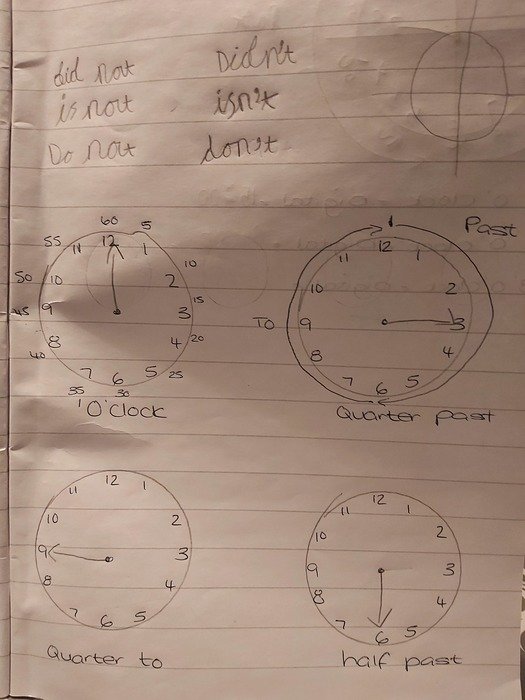 did not Didn't
is not isn't
Do not don't
60
12
5
1
10
2
15
3
20
4
25
5
30
6
35
7
40
8
45
9
50
10
55
11
'O'clock
Past
To
1
12
1
2
3
4
5
6
7
8
9
10
11
Quarter past
12
1
2
3
4
5
6
7
8
9
10
11
Quarter to
12
1
2
3
4
5
6
7
8
9
10
11
half past